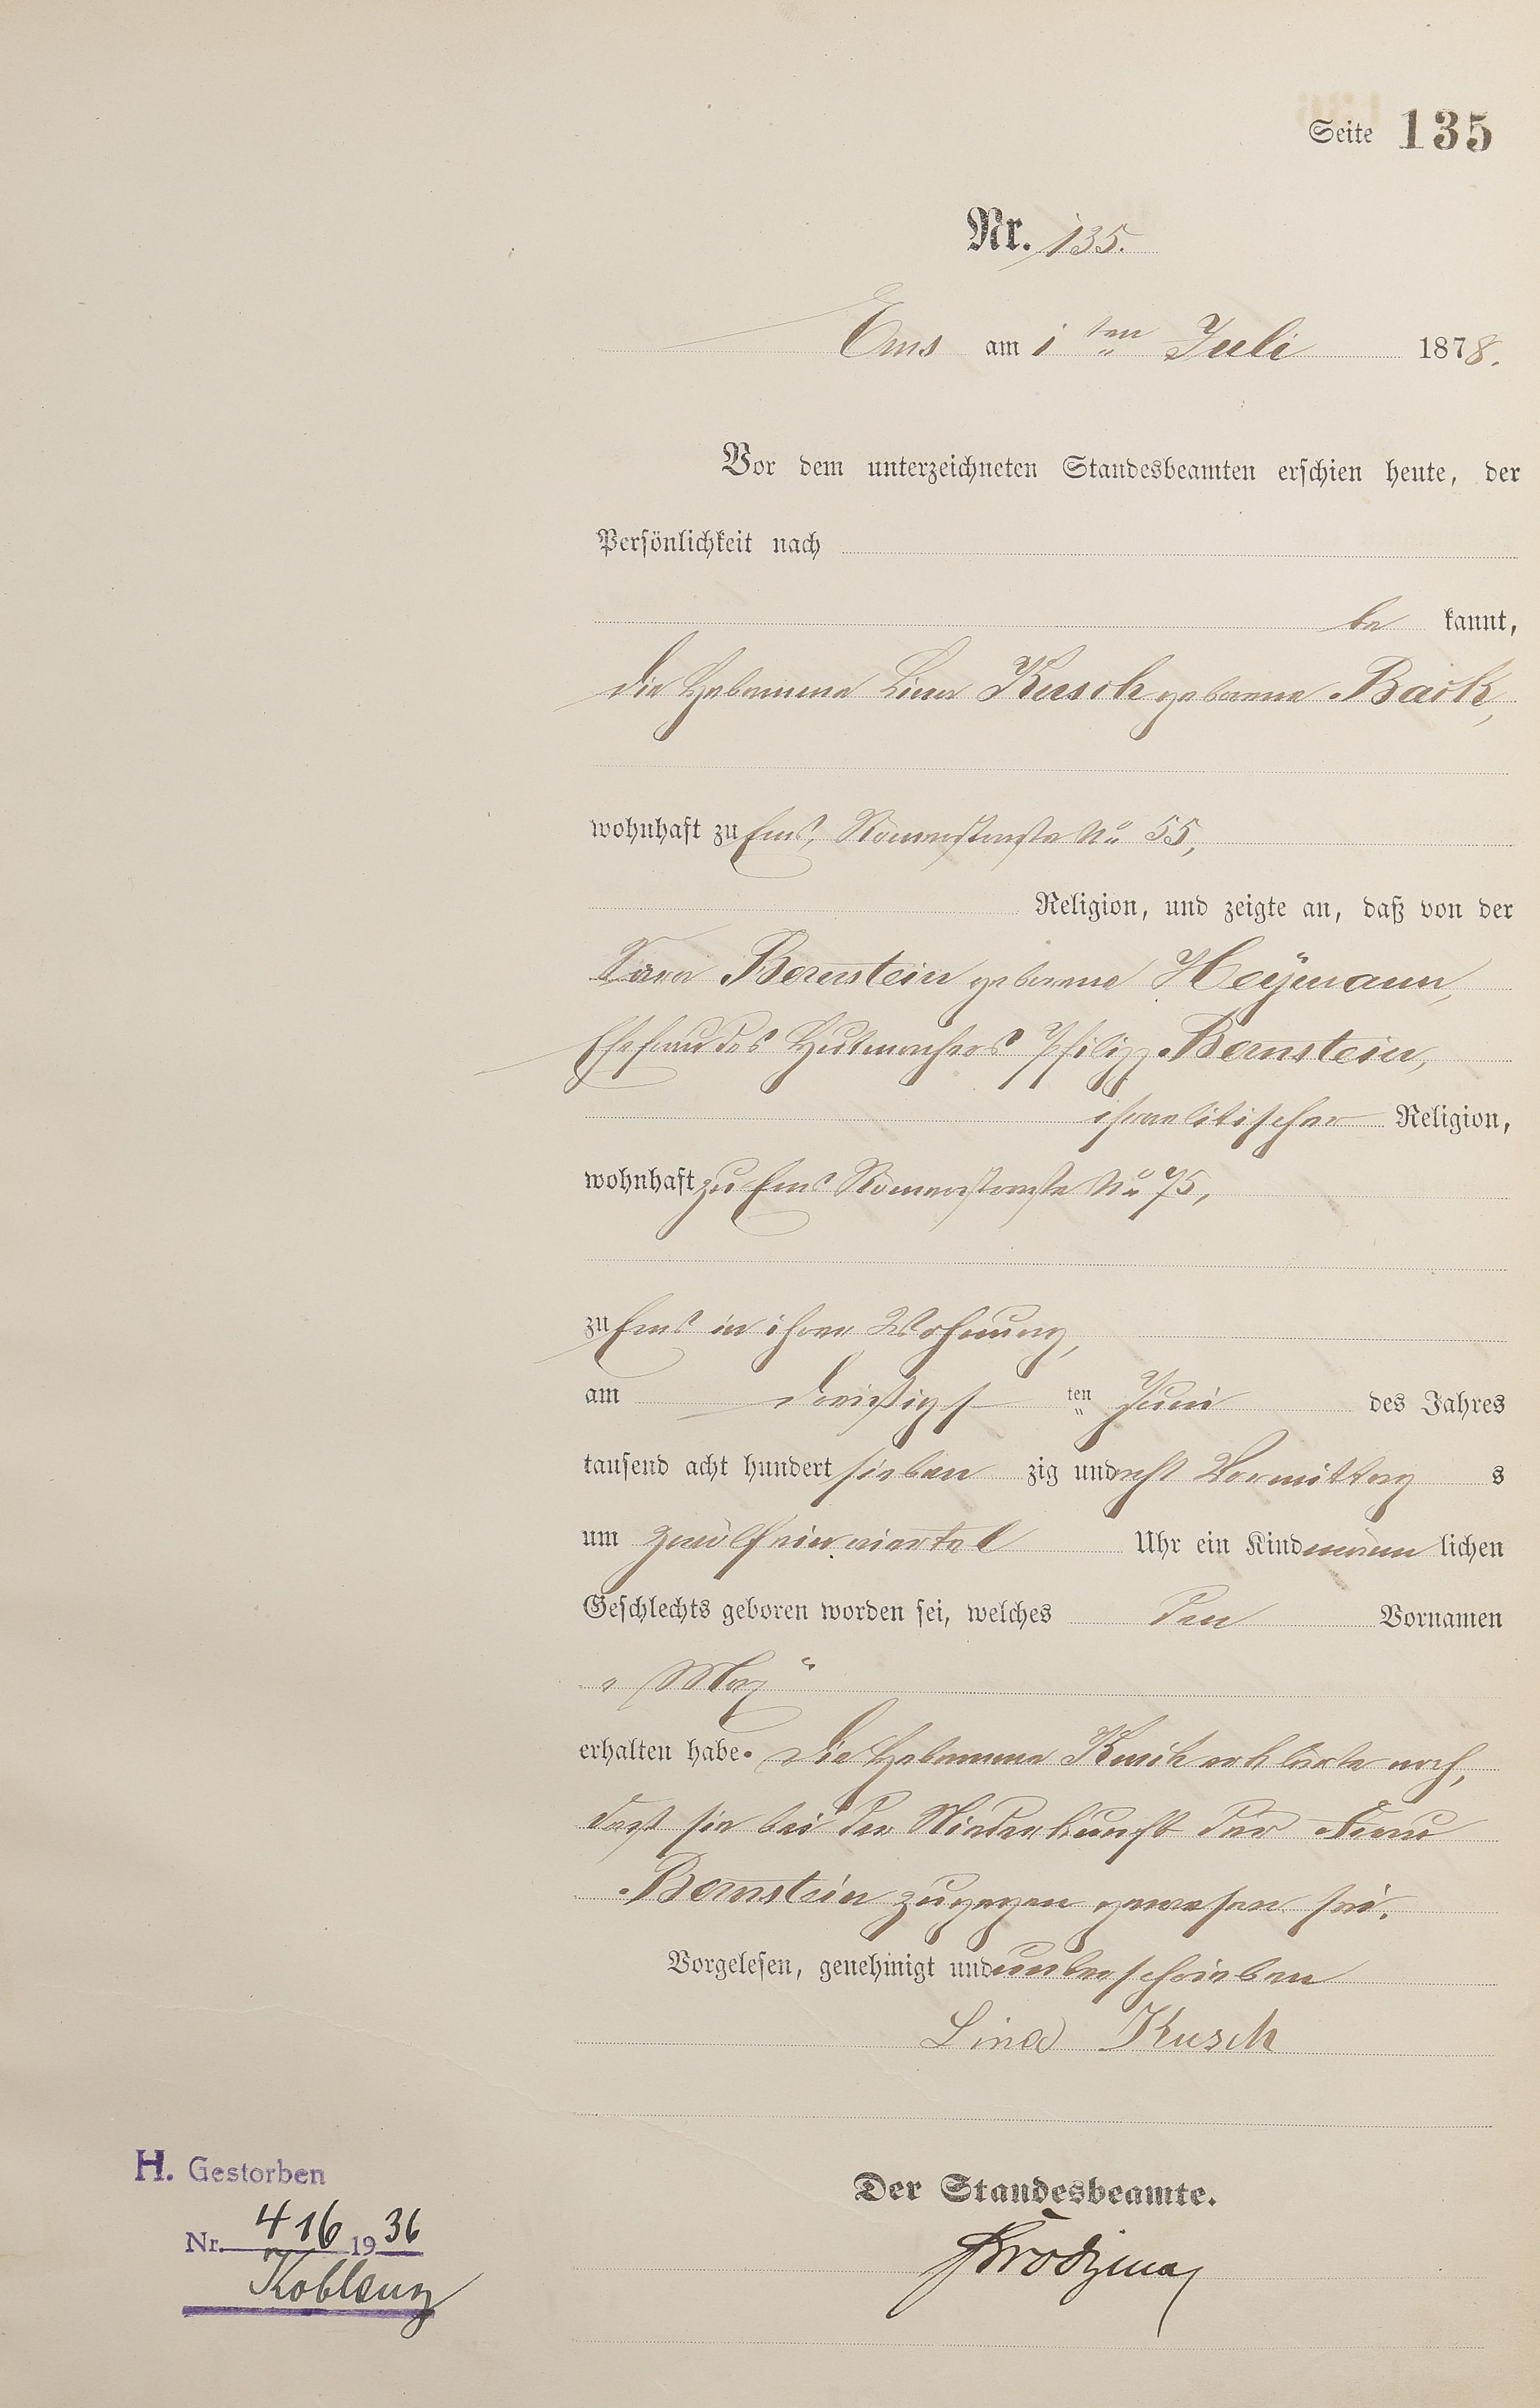 Seite 135
Nr. 135.
Ems am 1 ten Juli 1878.
Vor dem unterzeichneten Standesbeamten erschien heute, der
Persönlichkeit nach
be kannt,
die Hebamme Lina Kusch geborene Back,
wohnhaft zu Ems, Römerstraße No 55,
Religion, und zeigte an, daß von der
Sara Bernstein geborene Heymann,
Ehefrau des Hutmachers Philipp Bernstein,
israelitischer Religion,
wohnhaft zu Ems Römerstraße No 75,
zu Ems in ihrer Wohnung,
am dreißigs ten Juni des Jahres
tausend acht hundert sieben zig und acht Vormittag s
um zwölf ein viertel Uhr ein Kind männ lichen
Geschlechts geboren worden sei, welches den Vornamen
„Max“
erhalten habe. Die Hebamme Kusch erklärte noch,
daß sie bei der Niederkunft der Frau
Bernstein zugegen gewesen sei.
Vorgelesen, genehmigt und unterschrieben
Lina Kusch
Der Standesbeamte.
H. Gestorben
Nr. 416 1936
Koblenz